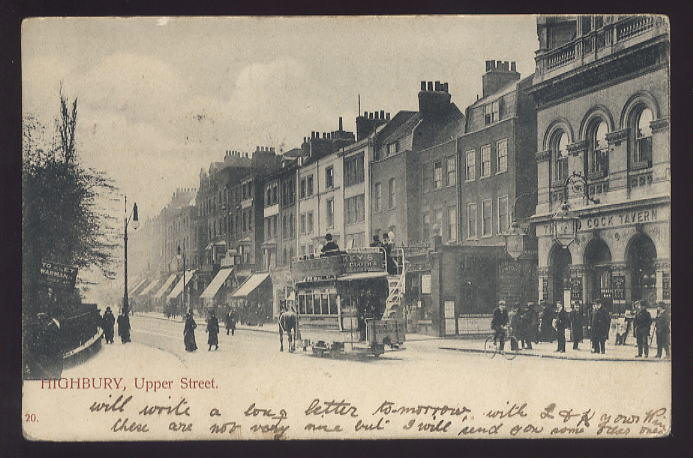 TO
WARM
KEY'S
COCK TAVERN
HIGHBURY, Upper Street.
20.
will write a long letter to-morrow, with L & K yours
these are not very nice but I will send you some ones